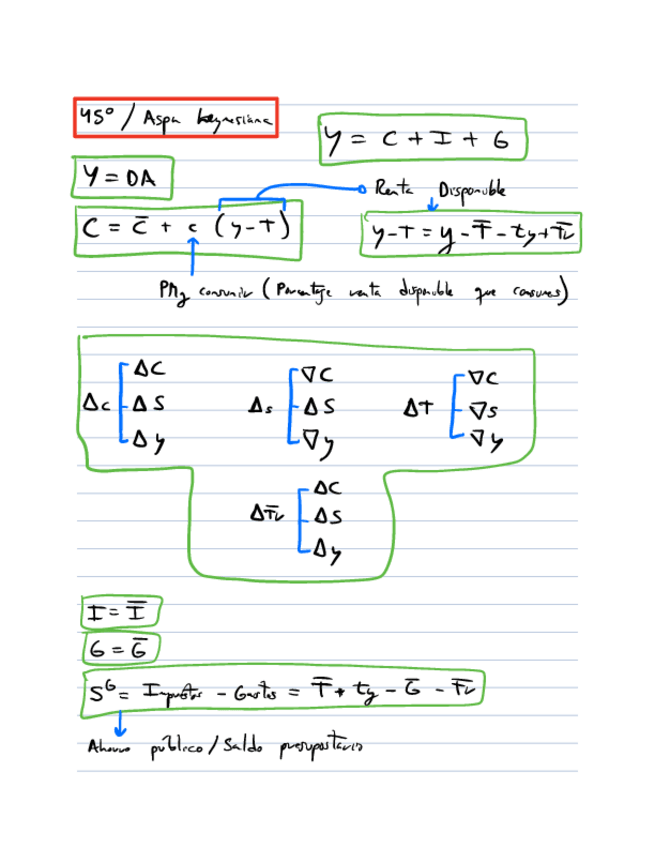 45º / Aspa keynesiana
Y = C + I + G
Y = DA
Renta Disponible
C = C̅ + c (y - T)
y - T = y - T̅ - ty + T̅r̅
PMg consumir (Porcentaje renta disponible que consumes)
Δc ΔC ΔS Δy
Δs ∇C ΔS ∇y
ΔT ∇C ∇S ∇y
ΔT̅r̅ ΔC ΔS Δy
I = I̅
G = G̅
Sᴳ = Impuestos - Gastos = T̅ + ty - G̅ - T̅r̅
Ahorro público / Saldo presupostario